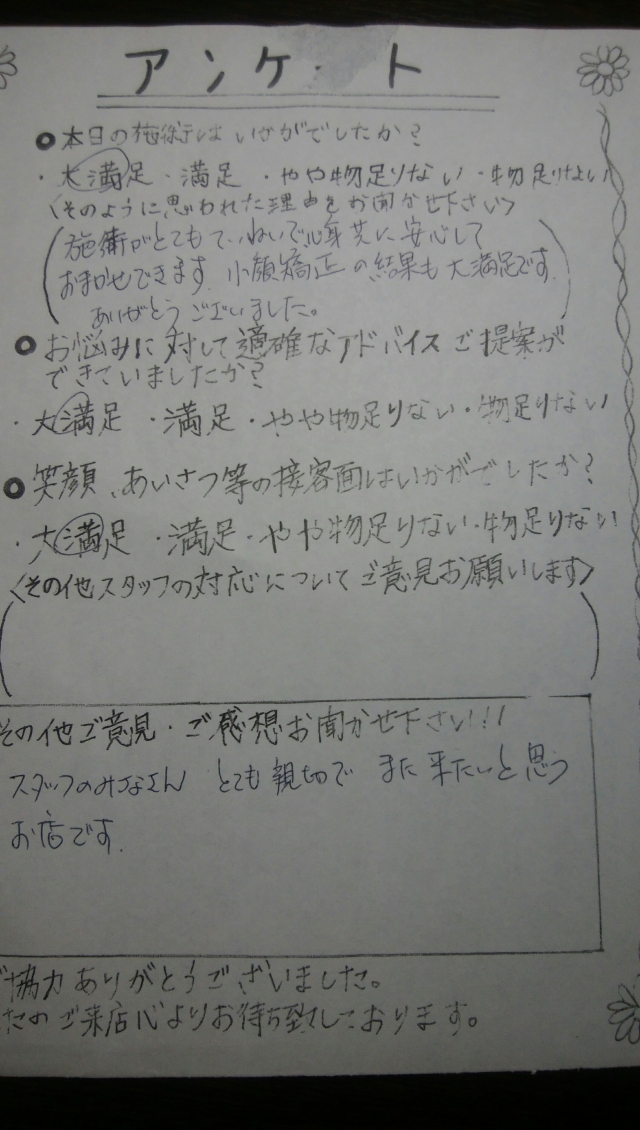 アンケート
本日の施術はいかがでしたか?
・大満足・満足・やや物足りない・物足りない
〈そのように思われた理由をお聞かせ下さい〉
施術がとてもていねいで心身共に安心して
おまかせできます。小顔矯正の結果も大満足です。
ありがとうございました。
お悩みに対して適確なアドバイスご提案が
できていましたか?
・大満足・満足・やや物足りない・物足りない
笑顔、あいさつ等の接客面はいかがでしたか?
・大満足・満足・やや物足りない・物足りない
〈その他スタッフの対応についてご意見お願いします〉
その他ご意見・ご感想お聞かせ下さい!!!
スタッフのみなさん とても親切で また来たいと思う
お店です。
ご協力ありがとうございました。
たのご来店心よりお待ち致しております。